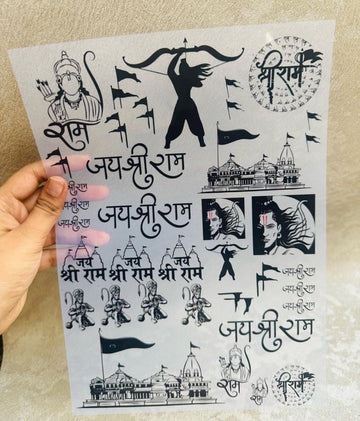 श्रीराम
राम
जय श्री राम
जय श्री राम
जय श्री राम
जय श्री राम
जय श्री राम
जय
श्री राम
जय
श्री राम
जय
श्री राम
जय श्री राम
जय श्री राम
जय श्री राम
जय श्री राम
राम
श्रीराम